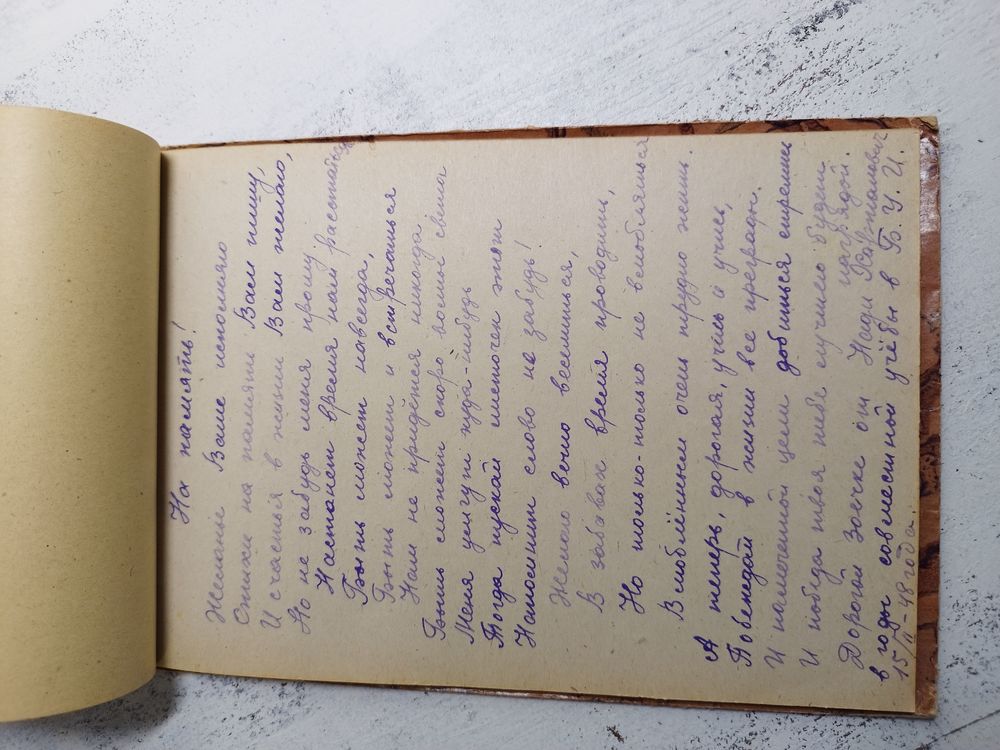 На память!
Желанье Ваше исполняю
Стихи на память Вам пишу,
И счастья в жизни Вам желаю,
Но не забудь меня прошу
Настанет время нам расстаться
Быть может навсегда,
Быть может и встречаться
Нам не придётся никогда,
Быть может скоро восные свели
Меня умчут куда-нибудь
Тогда пускай листочек этот
Напомнит слово не забудь!
Желаю вечно веселиться,
В забавах время проводить,
Но только-только не влюбляться
Влюблённым очень трудно жить.
А теперь, дорогая, учись и учись,
Побеждай в жизни все преграды.
И намеченной цели добиться стремись
И победа твоя тебе лучшею будет
наградой.
Дорогой Зоечке от Нади
в годы совместной учёбы в Б. У. И.
15/II-48 года.